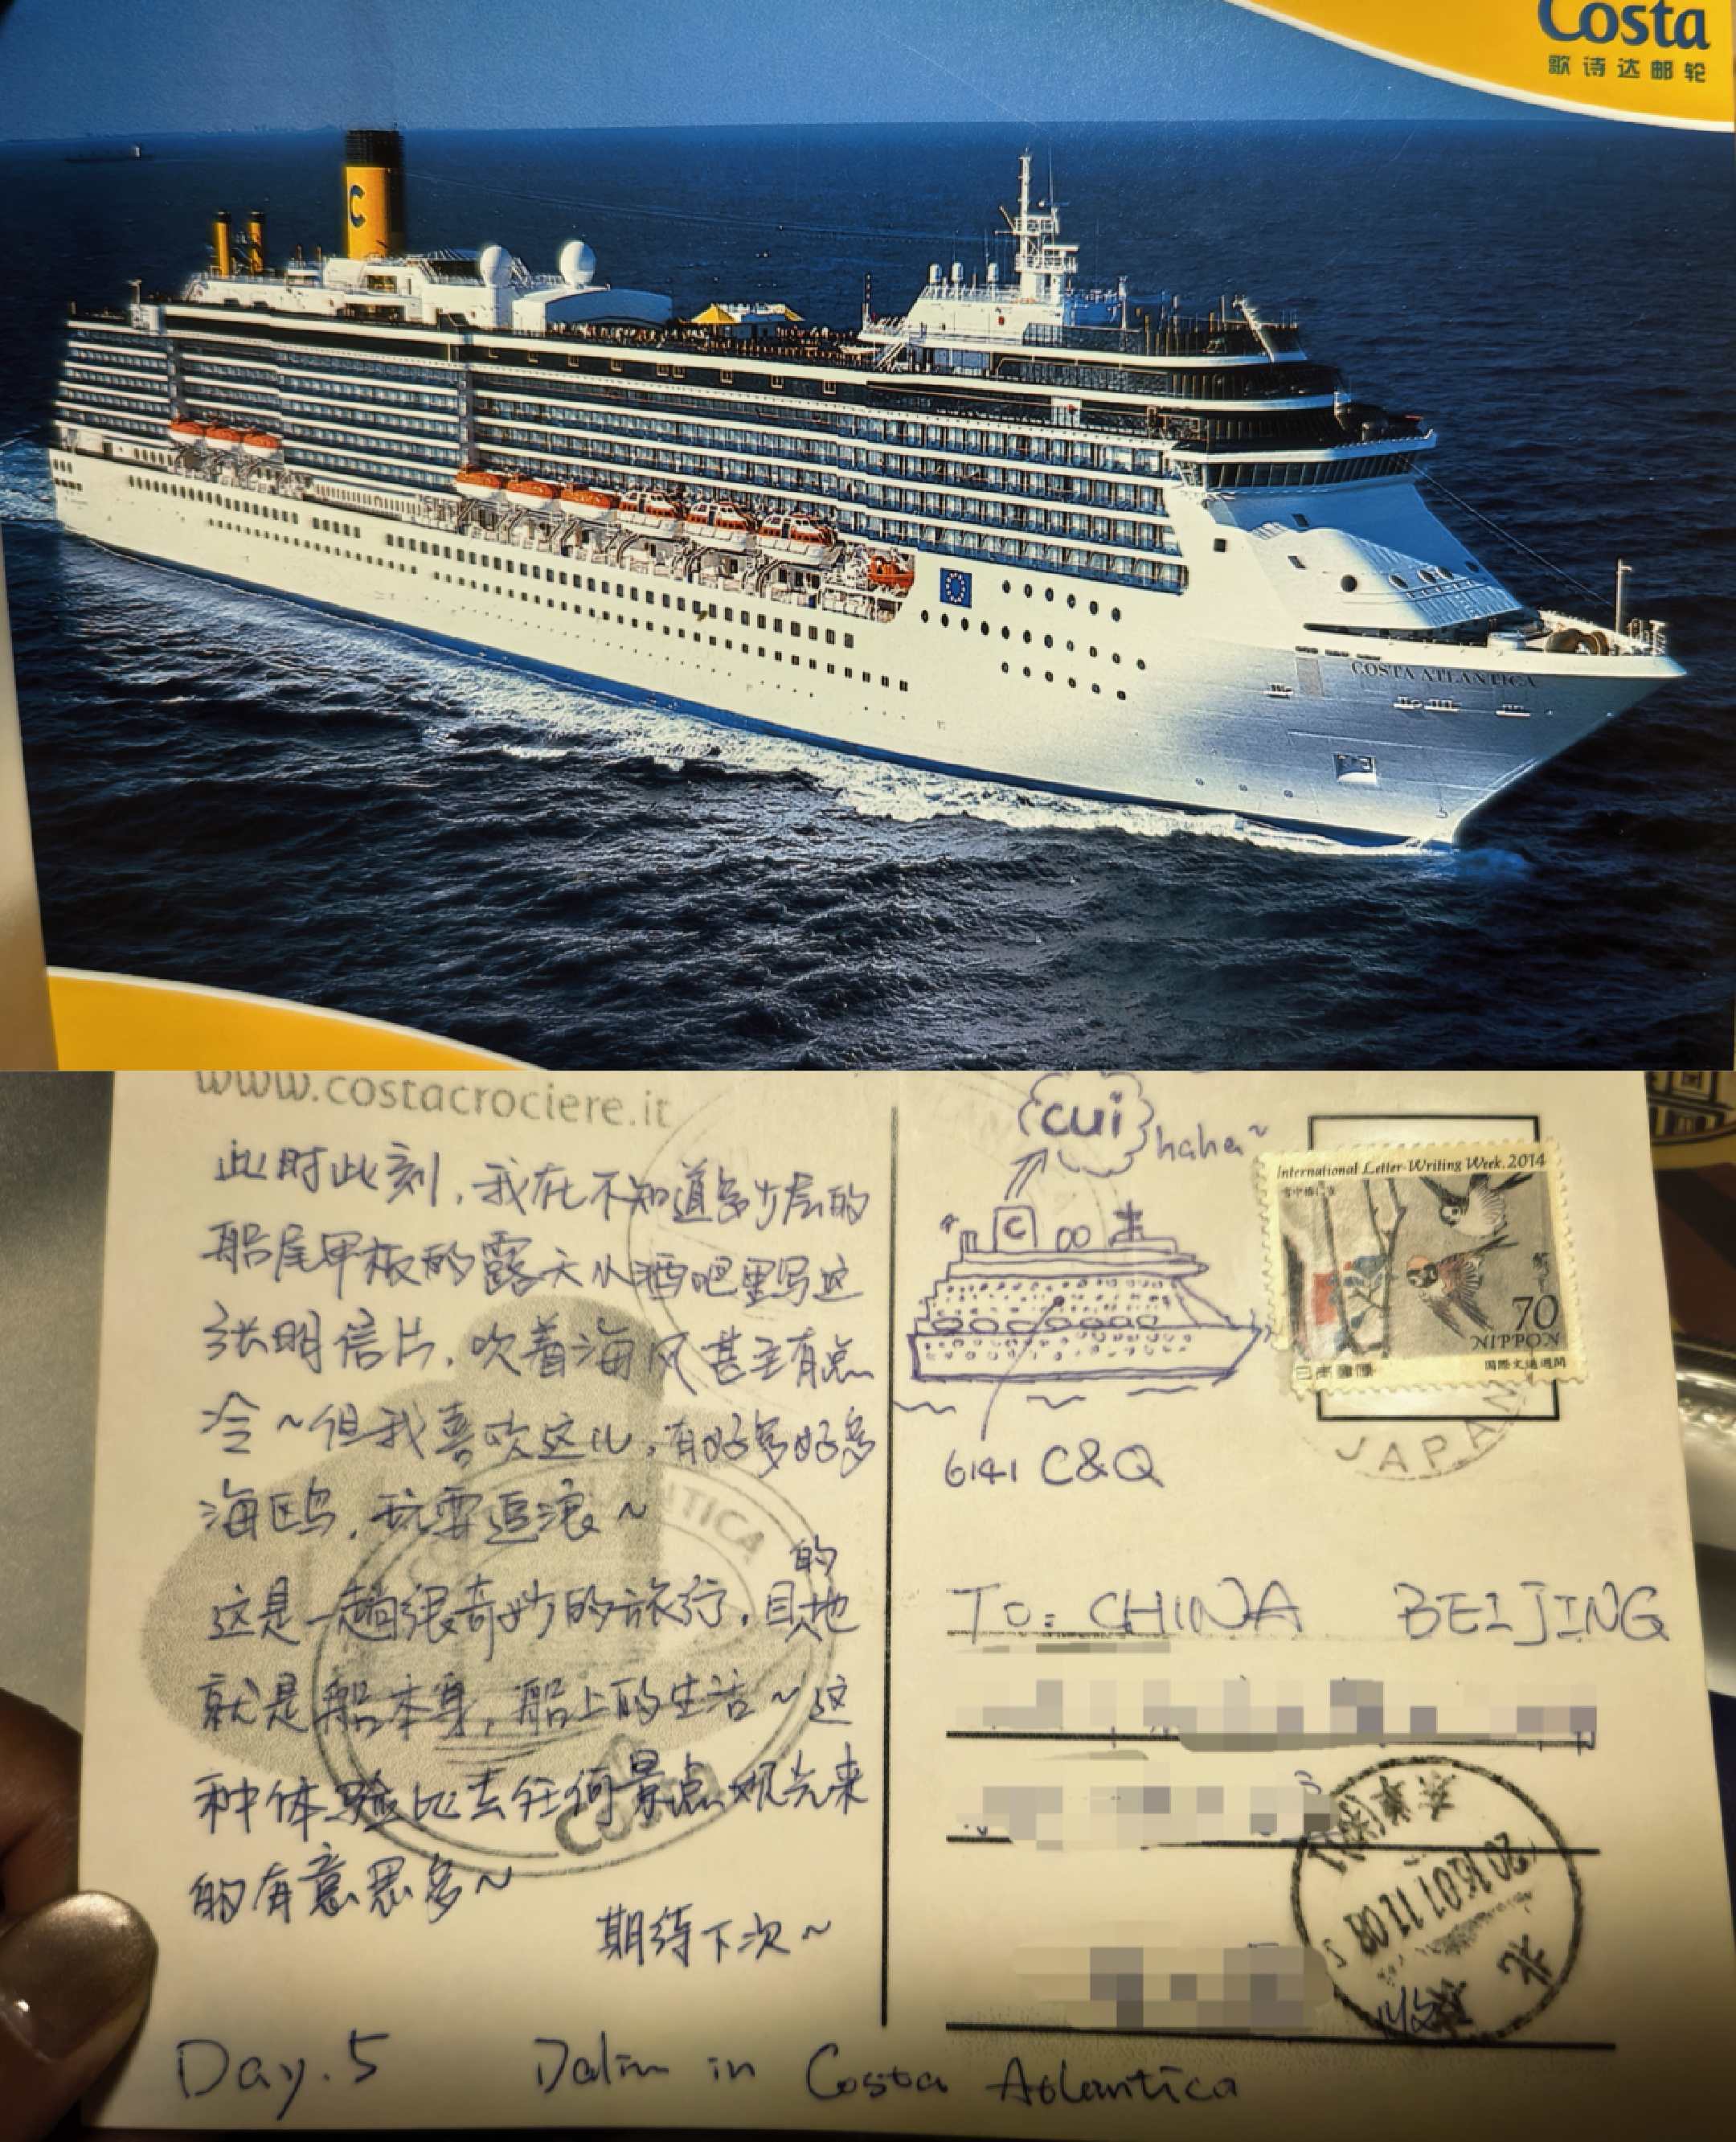 Costa
歌诗达邮轮
C
COSTA ATLANTICA
www.costacrociere.it
此时此刻，我在不知道多少层的
船尾甲板的露天小酒吧里写这
张明信片，吹着海风甚至有点
冷~但我喜欢这儿，有好多好多
海鸥，玩耍追浪~
这是一趟很奇妙的旅行，目的地
就是船本身，船上的生活~这
种体验比去任何景点观光来
的有意思多~
期待下次~
Day.5 Dalin in Costa Atlantica
cui
haha~
C
6141 C&Q
International Letter-Writing Week.2014
70
NIPPON
日本郵便
国際文通週間
JAPAN
TO: CHINA BEIJING
2016.07.11.08
北京
ANTICA
Costa